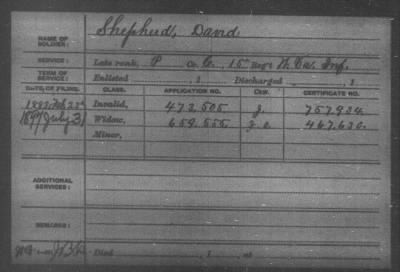 NAME OF SOLDIER: Shepherd, David
SERVICE: Late rank, P Co. C, 15 Reg't W. Va. Inf.
TERM OF SERVICE: Enlisted , 1 Discharged , 1
DATE OF FILING. CLASS. APPLICATION NO. CERTIFICATE NO.
Invalid, 472.505 757.934.
1897 July 31 Widow, 659.555 467.630.
Minor,
ADDITIONAL SERVICES:
REMARKS:
Died , 1 , at